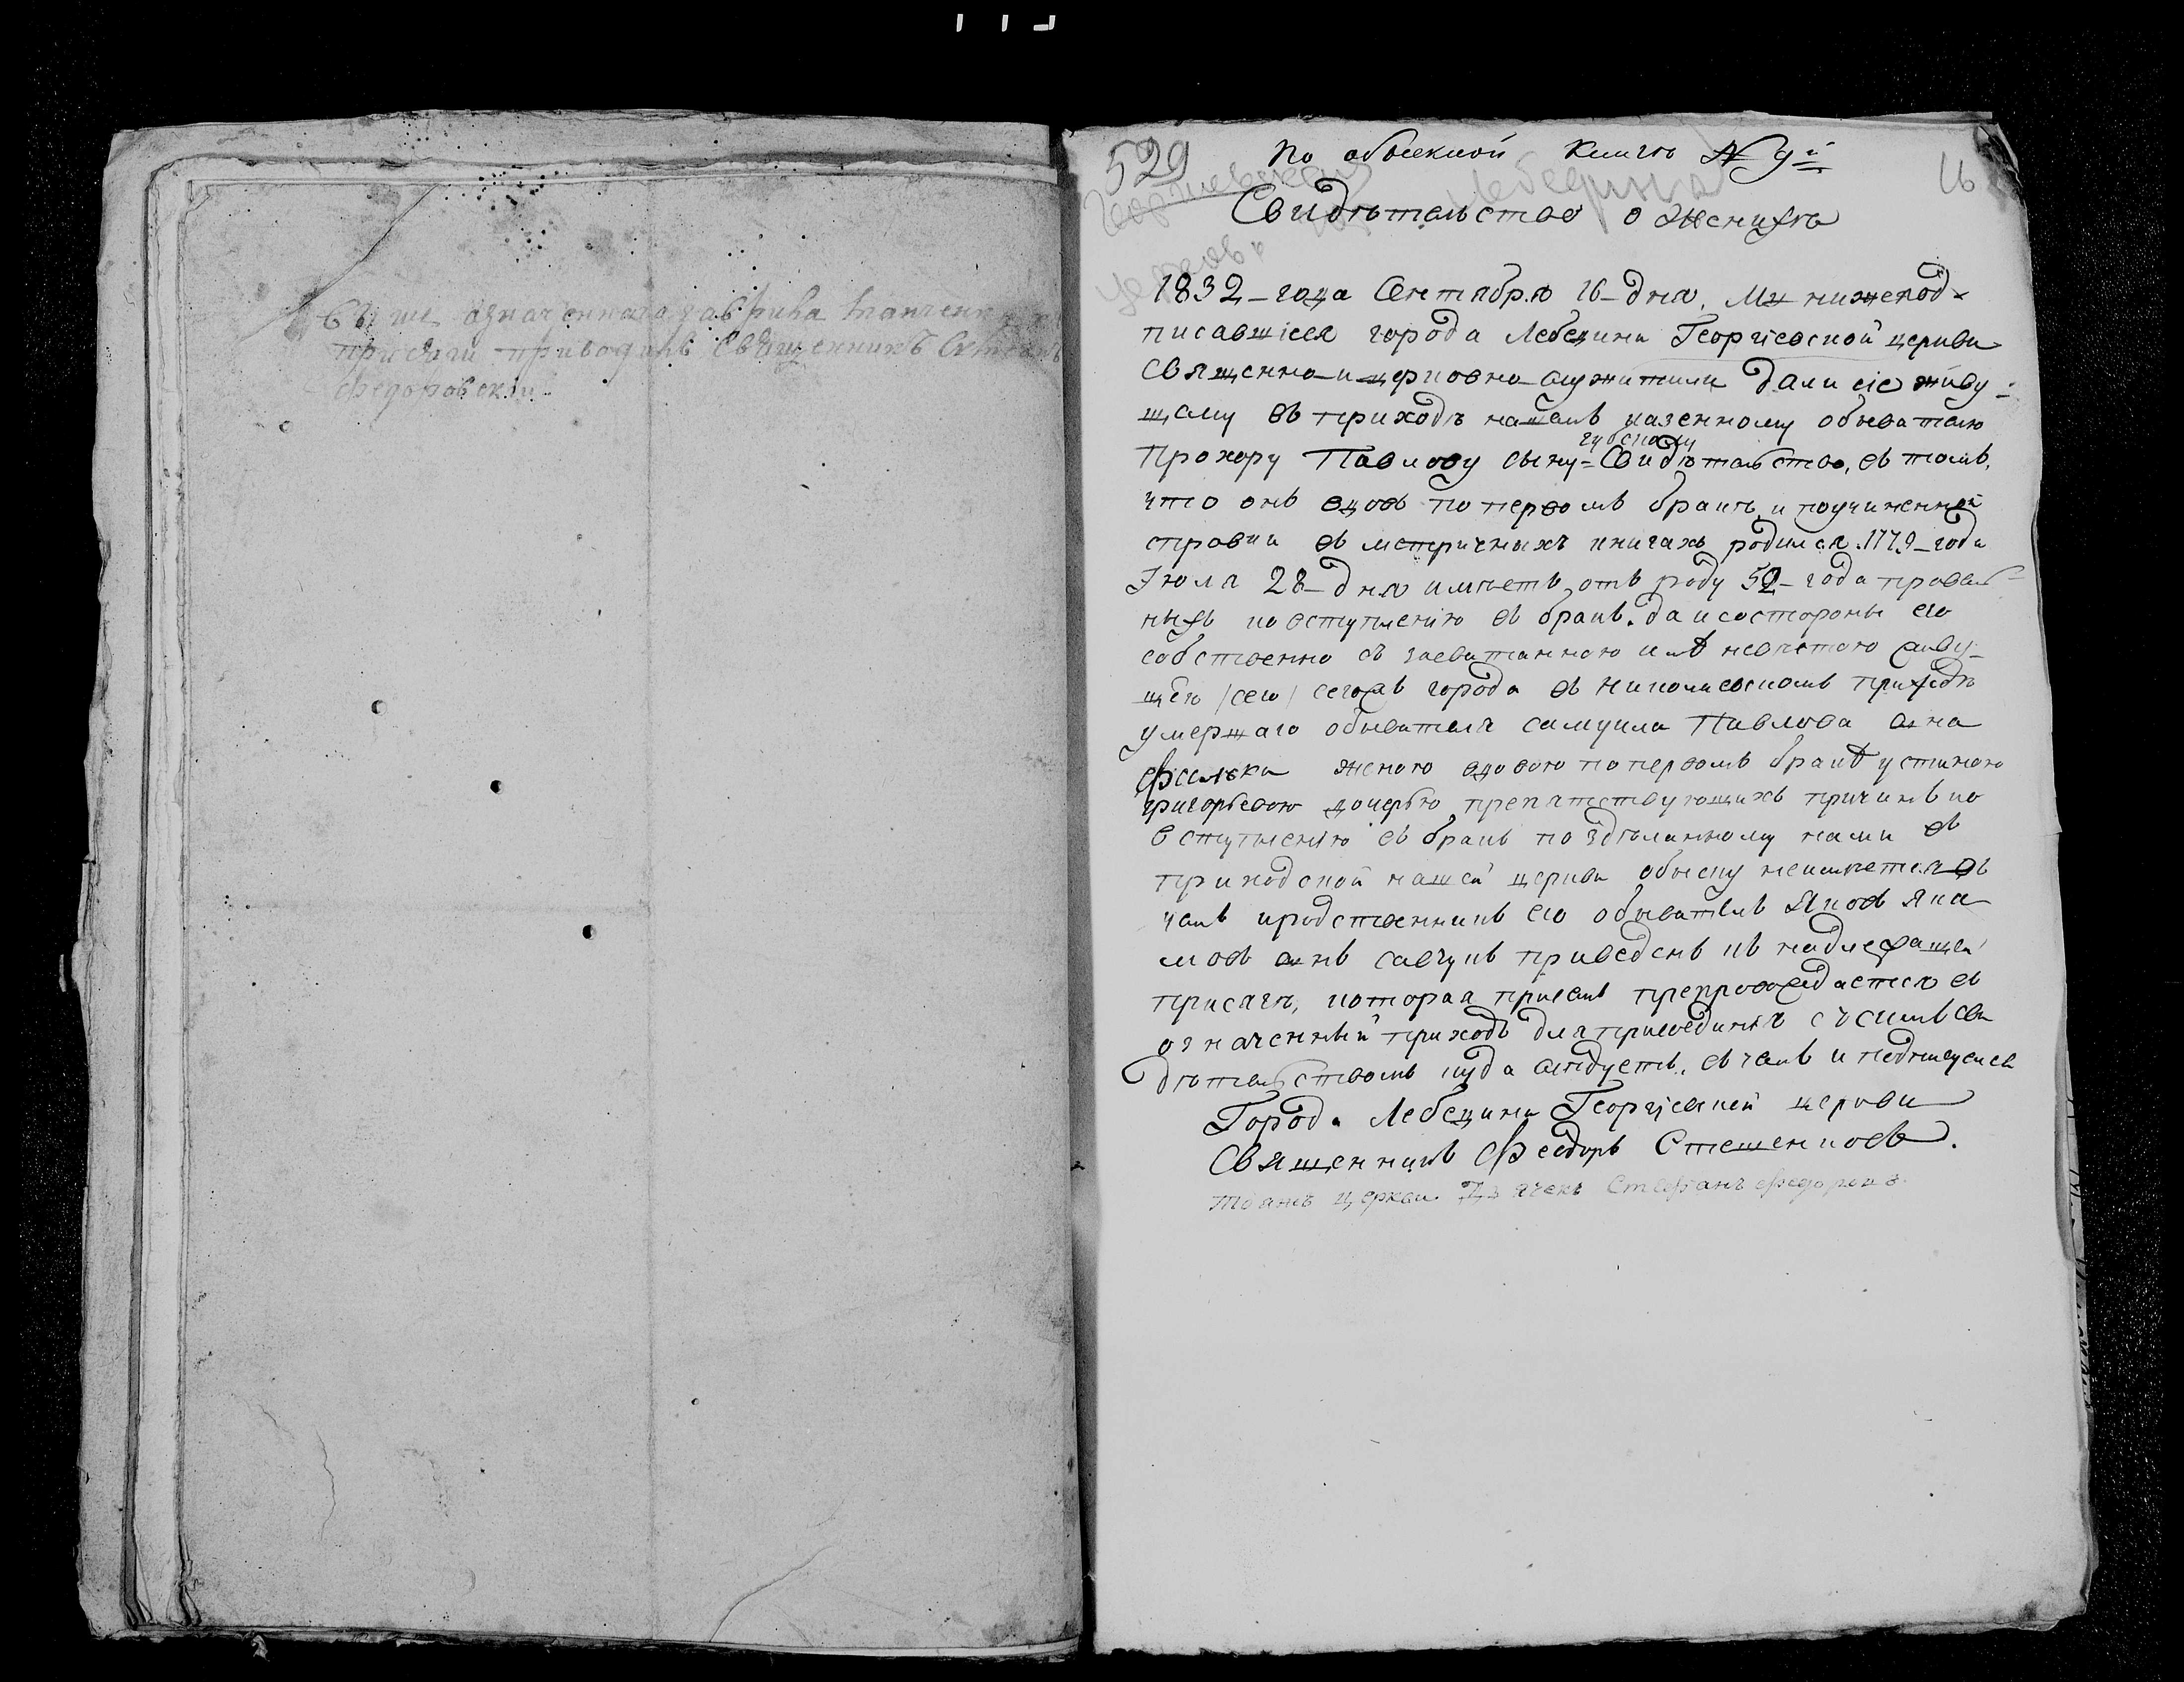 выше означеннаго
присяги приводилъ Священникъ
Федоровскій
529
16
По обыскной Книгѣ № 9й
Георгіевская Лебедина
Свидѣтельство о женихѣ
церковь
1832-года Сентября 16-дня, Мы нижепод-
писавшіеся города Лебедина Георгіевской церкви
Священно-и-церковно-служители дали сіе живу-
щему въ приходѣ нашемъ казенному обывателю
Прохору Павлову сыну Свидѣтельство, въ томъ,
что онъ вдовъ по первомъ бракѣ, и поучиненной
справки въ метричныхъ книгахъ родился 1779-года
Іюля 28-дня имѣетъ отъ роду 52-года
ныхъ ко вступленію въ бракъ. да и состороны его
собственно съ засватанною имъ невѣстою живу-
щею /сею/ сегожъ города въ Николаевскомъ приходѣ
умершаго обывателя самуила Павлова сына
женою вдовою по первомъ бракѣ устиною
григорьевою дочерью препятствующихъ причинъ ко
вступленію въ бракъ по здѣланному нами въ
приходской нашей церкви обыску неимѣется въ
чемъ иродственникъ его обыватель Яковъ Яко
мовъ сынъ савчукъ приведенъ къ надлежащей
присягѣ, которая присемъ препровождается въ
означенный приходъ для присоединія съ симъ сви
дѣтельствомъ куда слѣдуетъ. въ чемъ и подписуемся
Города Лебедина Георгіевской церкви
Священникъ Феодоръ Стешенковъ.
Тоянъ церкви Дьячекъ Стефанъ Федоровъ